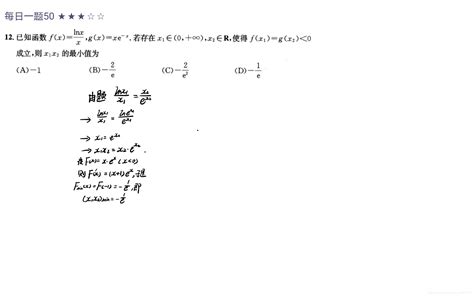 每日一题50 ★★★☆☆
12. 已知函数 f(x)=lnx/x, g(x)=xe⁻ˣ. 若存在 x₁∈(0,+∞), x₂∈R, 使得 f(x₁)=g(x₂)<0
成立,则 x₁x₂ 的最小值为
(A)-1 (B)-2/e (C)-2/e² (D)-1/e
由题 lnx₁/x₁ = x₂/e^x₂
→ lnx₁/x₁ = lne^x₂/e^x₂
→ x₁=e^x₂
→ x₁x₂ = x₂·e^x₂.
F(x)=x·eˣ (x<0)
则 F'(x)=(x+1)eˣ,
F min(x)=F(-1)=-1/e, 即
(x₁x₂)min=-1/e